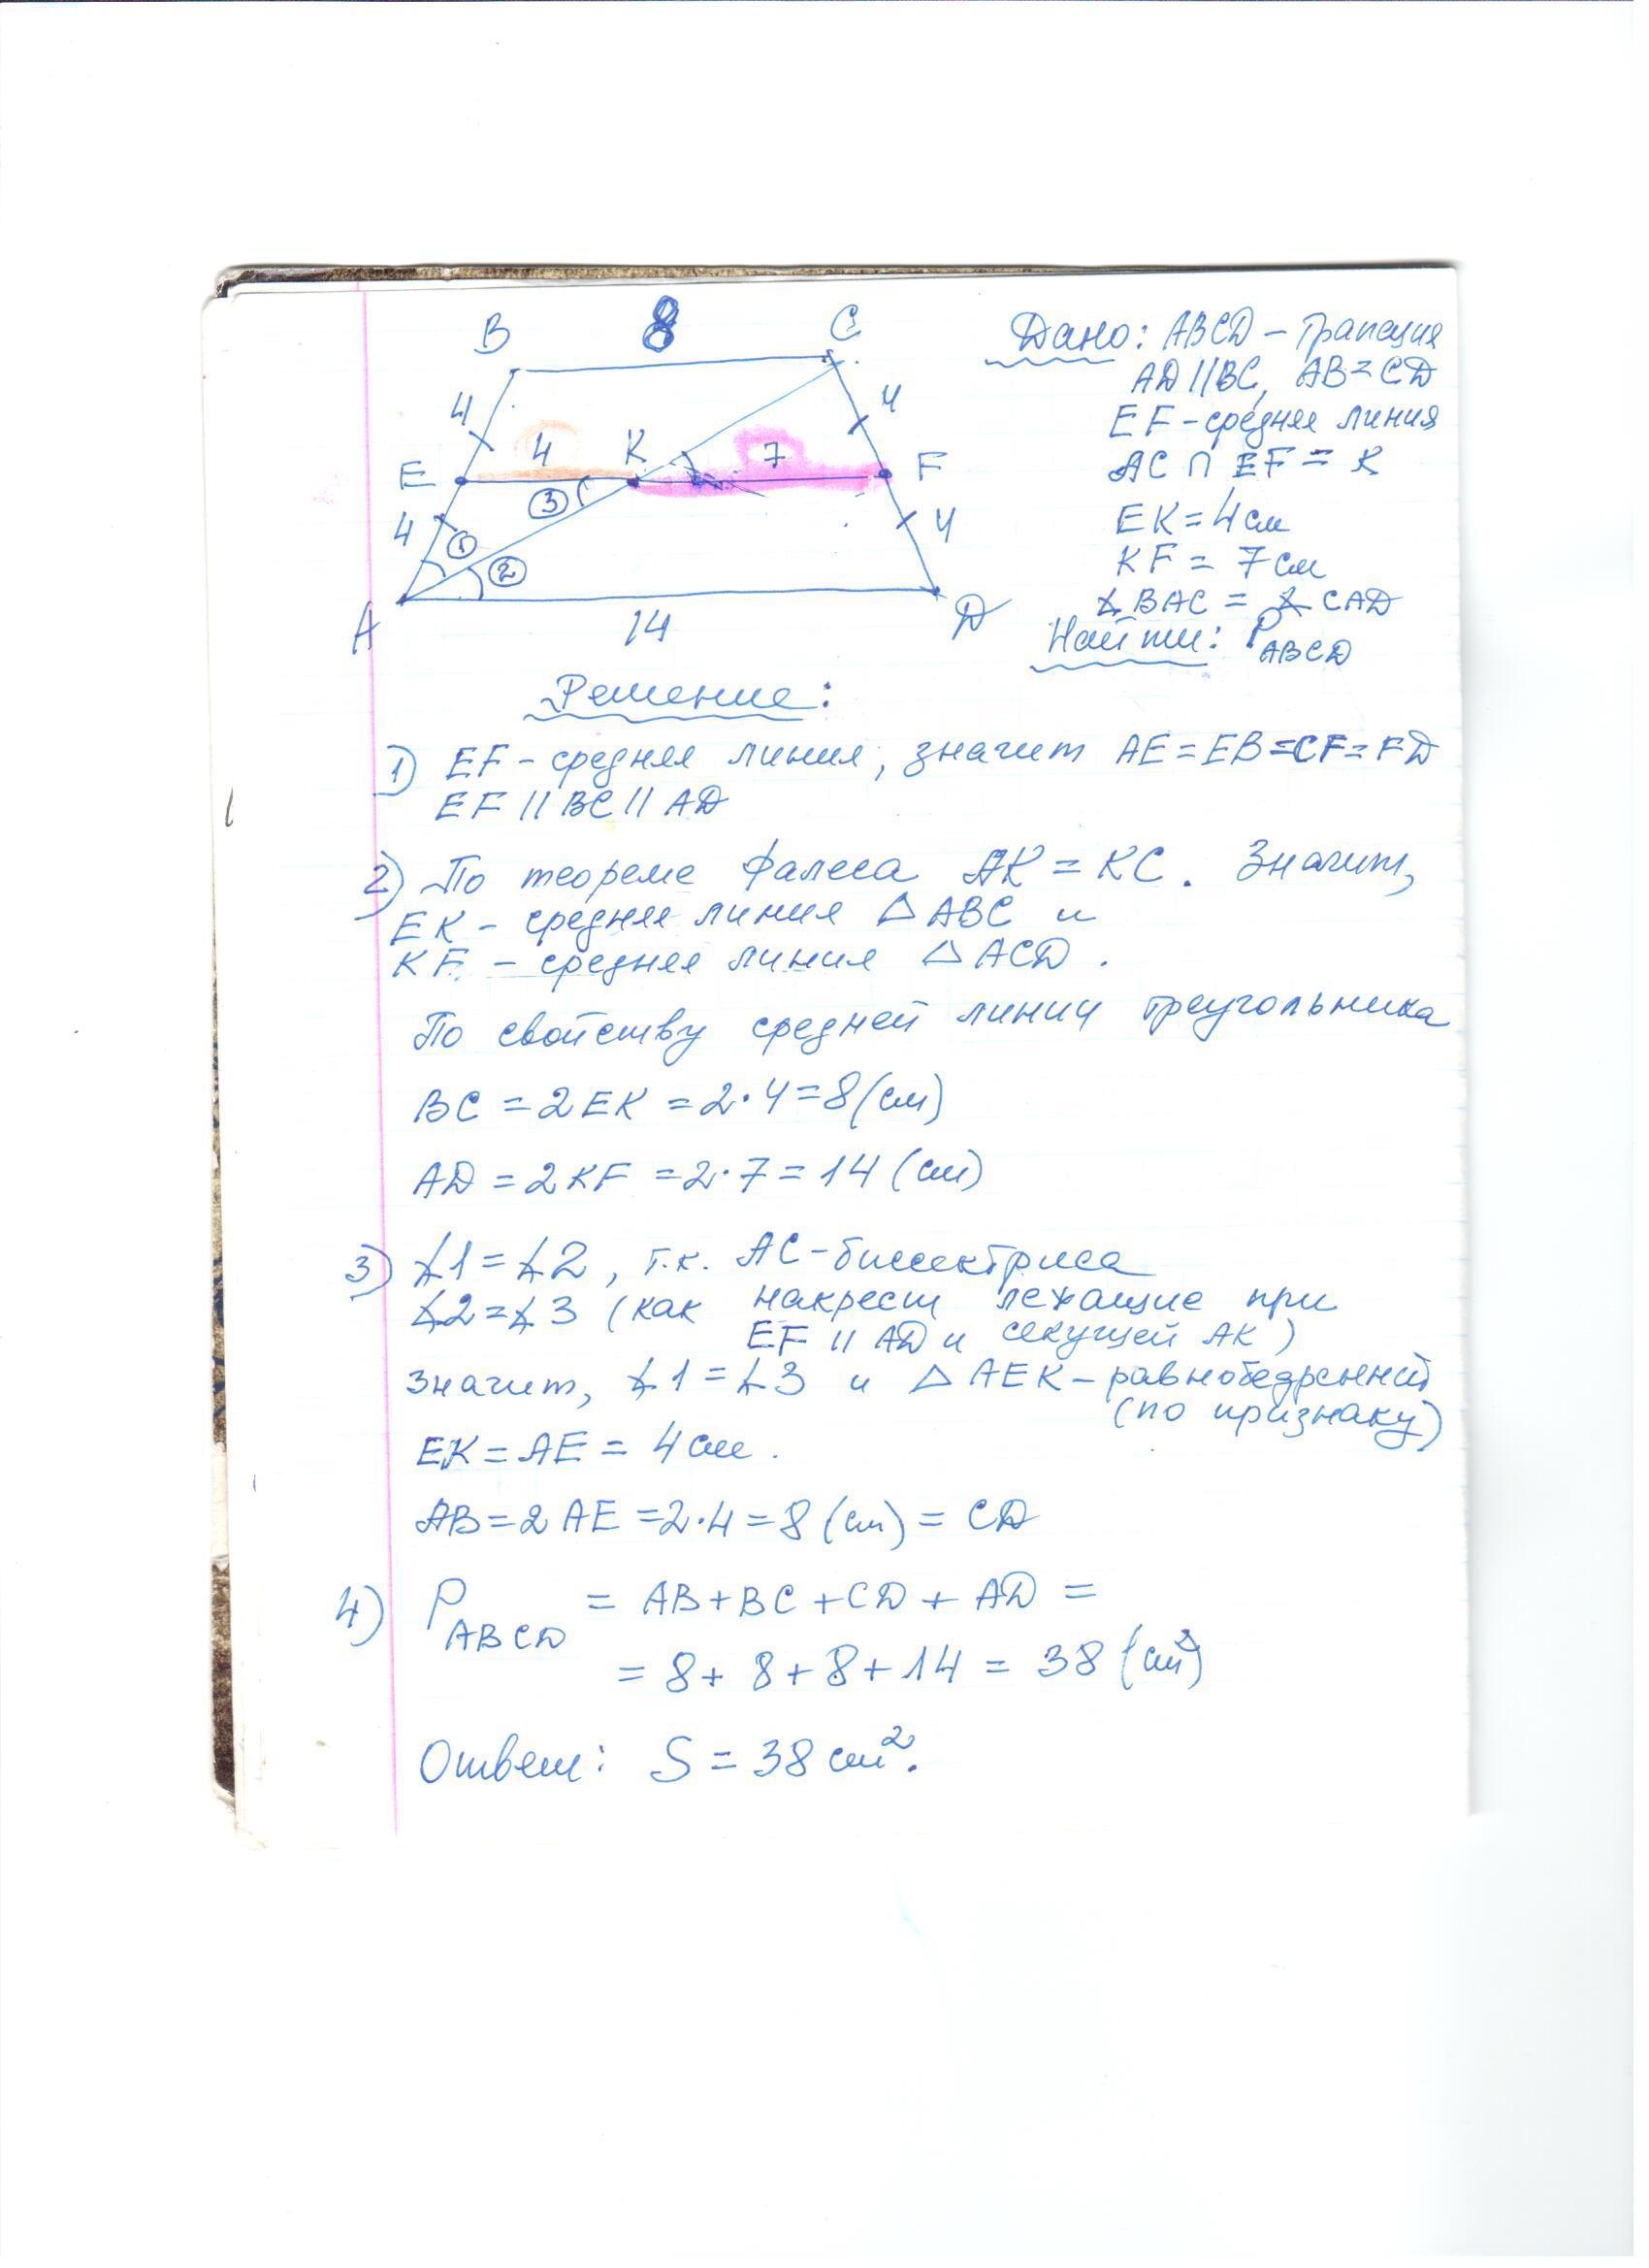 B 8 C
4 4
E 4 K 7 F
4 3 4
1 2
A 14 D
Дано: ABCD – трапеция
AD || BC, AB = CD
EF – средняя линия
AC ∩ EF = K
EK = 4 см
KF = 7 см
∡BAC = ∡CAD
Найти: P ABCD
Решение:
1) EF – средняя линия, значит AE = EB = CF = FD
EF || BC || AD
2) По теореме Фалеса AK = KC. Значит,
EK – средняя линия △ABC и
KF – средняя линия △ACD.
По свойству средней линии треугольника
BC = 2EK = 2·4 = 8 (см)
AD = 2KF = 2·7 = 14 (см)
3) ∡1 = ∡2, т.к. AC – биссектриса
∡2 = ∡3 (как накрест лежащие при
EF || AD и секущей AK)
значит, ∡1 = ∡3 и △AEK – равнобедренный
(по признаку)
EK = AE = 4 см.
AB = 2AE = 2·4 = 8 (см) = CD
4) P ABCD = AB + BC + CD + AD =
= 8 + 8 + 8 + 14 = 38 (см²)
Ответ: S = 38 см².